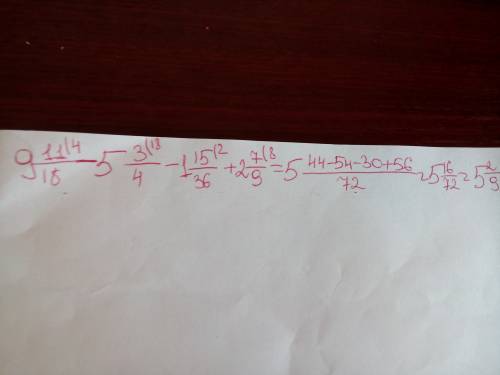 9 11/18 (4 − 5 3/4 (18 − 1 15/36 (2 + 2 7/9 (8 = 5 44-54-30+56/72 = 5 16/72 = 5 2/9